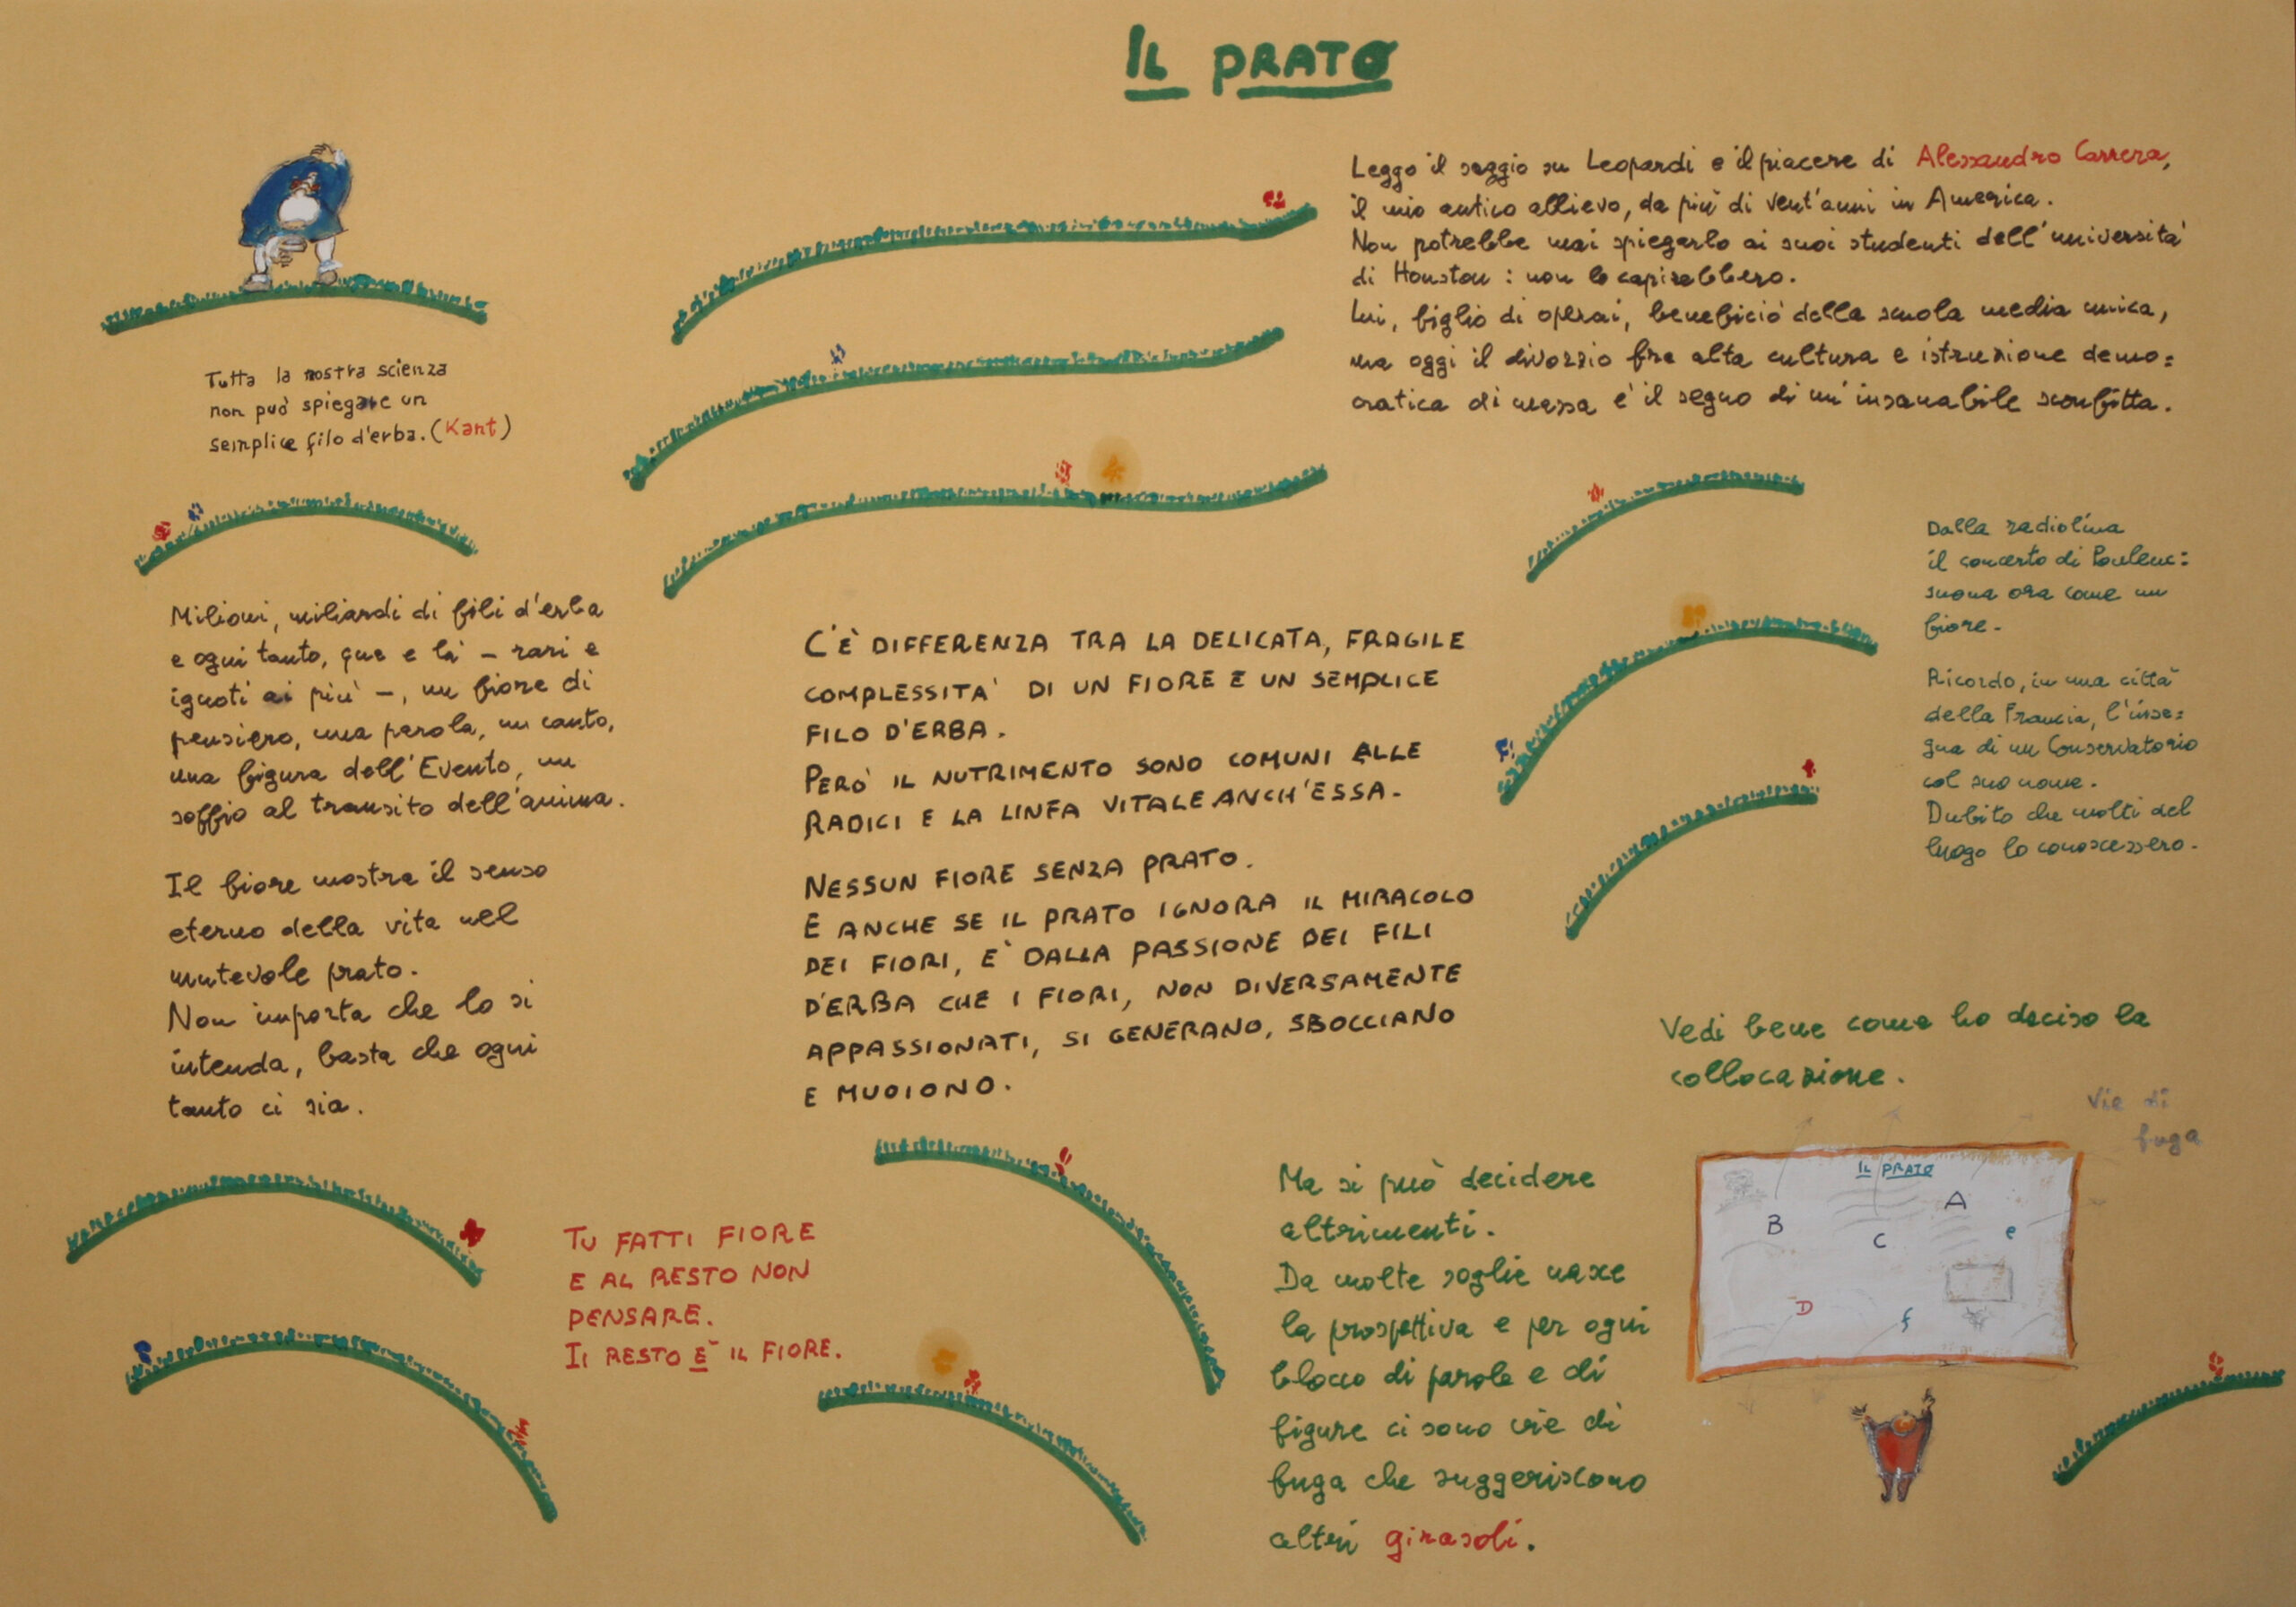 IL PRATO
Tutta la nostra scienza
non può spiegare un
semplice filo d'erba. (Kant)
Leggo il saggio su Leopardi e il piacere di Alessandro Carrera,
il mio antico allievo, da più di vent'anni in America.
Non potrebbe mai spiegarlo ai suoi studenti dell'università
di Houston: non lo capirebbero.
Lui, figlio di operai, beneficiò della scuola media unica,
ma oggi il divorzio fra alta cultura e istruzione demo=
cratica di massa è il segno di un'insanabile sconfitta.
Milioni, miliardi di fili d'erba
e ogni tanto, qua e là - rari e
ignoti ai più -, un fiore di
pensiero, una parola, un canto,
una figura dell'Evento, un
soffio al transito dell'anima.
Il fiore mostra il senso
eterno della vita nel
mutevole prato.
Non importa che lo si
intenda, basta che ogni
tanto ci sia.
C'È DIFFERENZA TRA LA DELICATA, FRAGILE
COMPLESSITA' DI UN FIORE E UN SEMPLICE
FILO D'ERBA.
PERÒ IL NUTRIMENTO SONO COMUNI ALLE
RADICI E LA LINFA VITALE ANCH'ESSA.
NESSUN FIORE SENZA PRATO.
E ANCHE SE IL PRATO IGNORA IL MIRACOLO
DEI FIORI, È DALLA PASSIONE DEI FILI
D'ERBA CHE I FIORI, NON DIVERSAMENTE
APPASSIONATI, SI GENERANO, SBOCCIANO
E MUOIONO.
Dalla radiolina
il concerto di Poulenc:
suona ora come un
fiore.
Ricordo, in una città
della Francia, l'inse=
gna di un Conservatorio
col suo nome.
Dubito che molti del
luogo lo conoscessero.
TU FATTI FIORE
E AL RESTO NON
PENSARE.
IL RESTO È IL FIORE.
Ma si può decidere
altrimenti.
Da molte soglie nasce
la prospettiva e per ogni
blocco di parole e di
figure ci sono vie di
fuga che suggeriscono
altri girasoli.
Vedi bene come ho deciso la
collocazione.
Vie di
fuga
IL PRATO
A
B
C
e
D
f